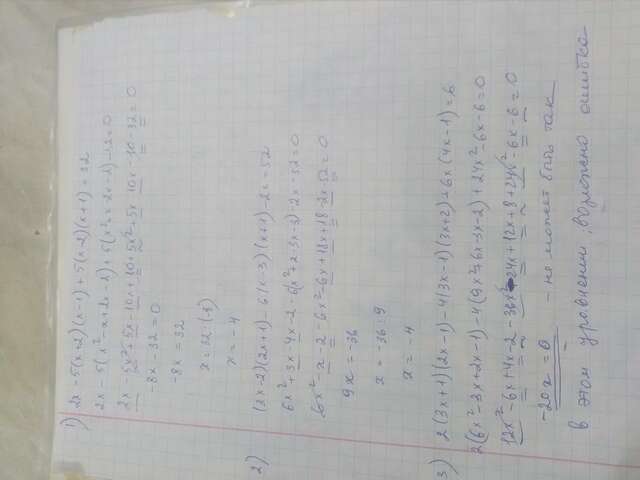 1) 2x - 5(x-2)(x-1) + 5(x-2)(x+1) = 32
2x - 5(x² - x + 2x - 2) + 5(x² + 2x - 2) - 32 = 0
2x - 5x² + 5x - 10x + 10 + 5x² + 5x - 10x - 10 - 32 = 0
-8x - 32 = 0
-8x = 32
x = 32 : (-8)
x = -4
2) (3x-2)(2x+1) - 6(x-3)(x+1) - 2x = 52
6x² + 3x - 4x - 2 - 6(x² + 2 - 3x - 3) - 2x - 52 = 0
6x² - x - 2 - 6x² - 6x + 18x + 18 - 2x - 52 = 0
9x = -36
x = -36 : 9
x = -4
3) 2(3x+1)(2x-1) - 4(3x-1)(3x+2) + 6x(4x-1) = 6
2(6x² - 3x + 2x - 1) - 4(9x² + 6x - 3x - 2) + 24x² - 6x - 6 = 0
12x² - 6x + 4x - 2 - 36x² - 24x + 12x + 8 + 24x² - 6x - 6 = 0
-20x = 0 - не может быть так
в этом уровнении, возможно ошибка